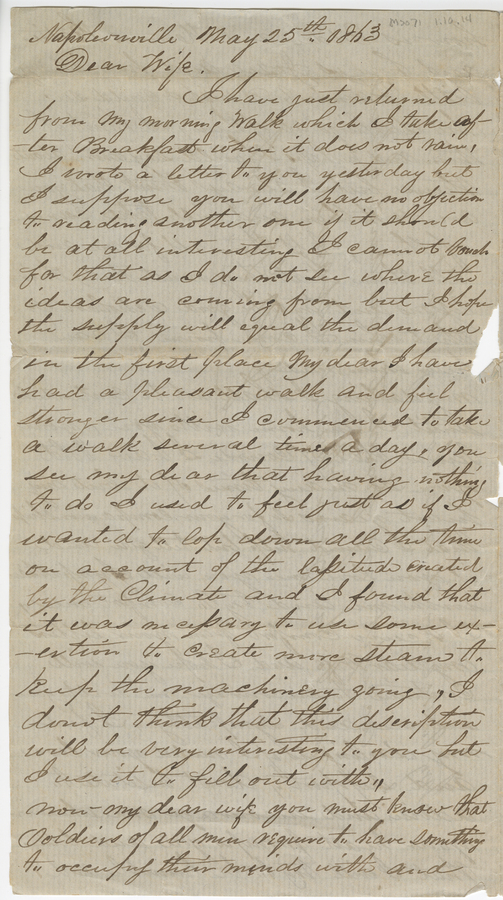 M5071 1.10.14
Napoleonville May 25th 1863
Dear Wife.
I have just returned
from my morning Walk which I take af-
-ter Breakfast when it does not rain,
I wrote a letter to you yesterday but
I suppose you will have no objection
to reading another one if it should
be at all interesting I cannot vouch
for that as I do not see where the
ideas are coming from but I hope
the supply will equal the demand
in the first place My dear I have
had a pleasant walk and feel
stronger since I commenced to take
a walk several times a day, you
see my dear that having nothing
to do I used to feel just as if I
wanted to lop down all the time
on account of the lassitude created
by the Climate and I found that
it was necessary to use some ex-
-ertion to create more steam to
keep the machinery going, I
donot think that this description
will be very interesting to you but
I use it to fill out with,
now my dear wife you must know that
Soldiers of all men require to have something
to occupy their minds with and